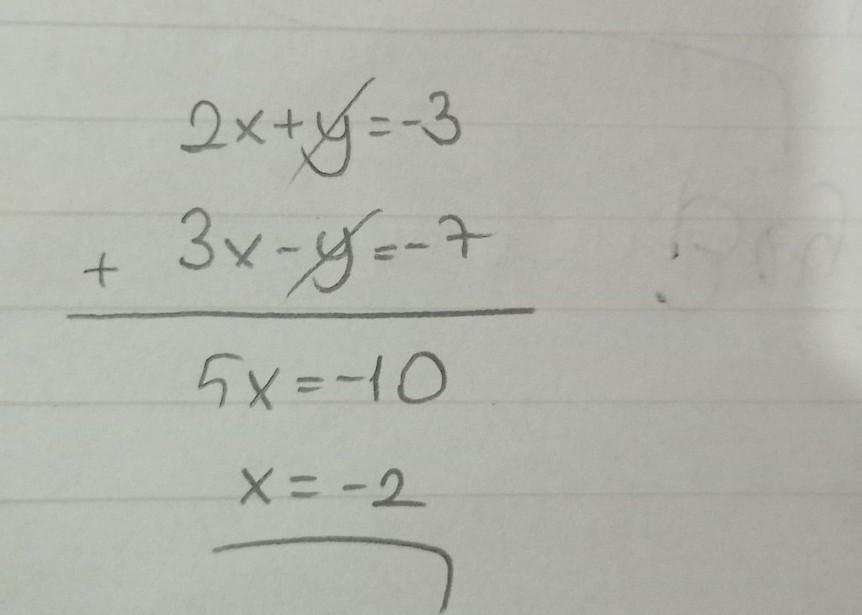 2x+y=-3
+ 3x-y=-7
5x=-10
x=-2